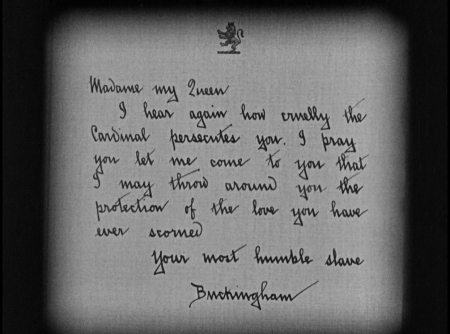 Madame my Queen
I hear again how cruelly the
Cardinal persecutes you. I pray
you let me come to you that
I may throw around you the
protection of the love you have
ever scorned
Your most humble slave
Buckingham